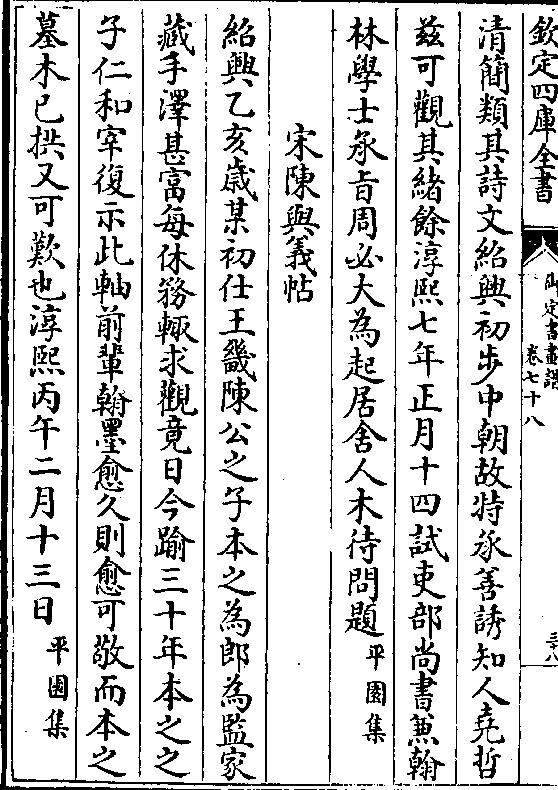 欽定四庫全書
御定書畫譜
卷七十八
三十八
清簡類其詩文紹興初步中朝故特承善誘知人堯哲
茲可觀其緒餘淳熙七年正月十四試吏部尚書兼翰
林學士承旨周必大為起居舍人木待問題平園集
宋陳與義帖
紹興乙亥歲某初仕王畿陳公之子本之為郎為監家
藏手澤甚富每休務輙求觀竟日今踰三十年本之之
子仁和宰復示此軸前輩翰墨愈久則愈可敬而本之
墓木已拱又可歎也淳熙丙午二月十三日平園集